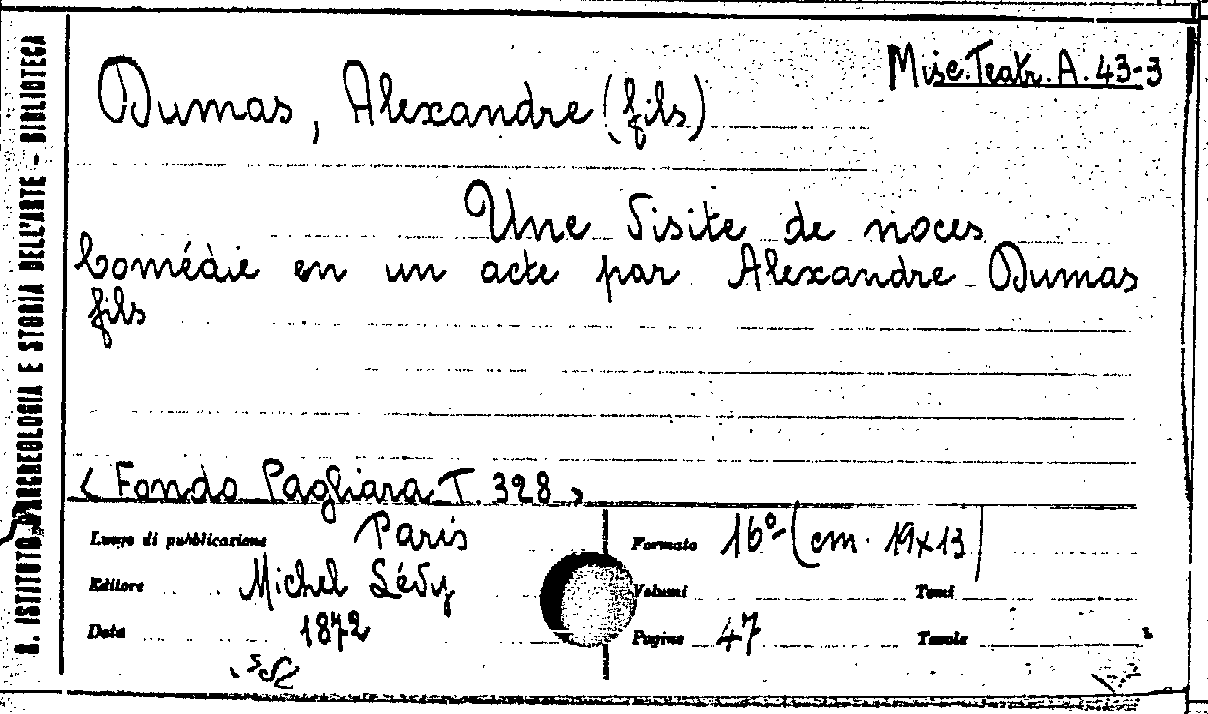 R. ISTITUTO D'ARCHEOLOGIA E STORIA DELL'ARTE - BIBLIOTECA
Misc. Teatr. A. 43-3
Dumas, Alexandre (fils)
Une Visite de noces
Comédie en un acte par Alexandre Dumas
fils
< Fondo Pagliara T. 328 >
Luogo di pubblicazione Paris
Formato 16º (cm. 19x13)
Editore Michel Lévy
Volumi Tomi
Data 1872
Pagine 47 Tavole